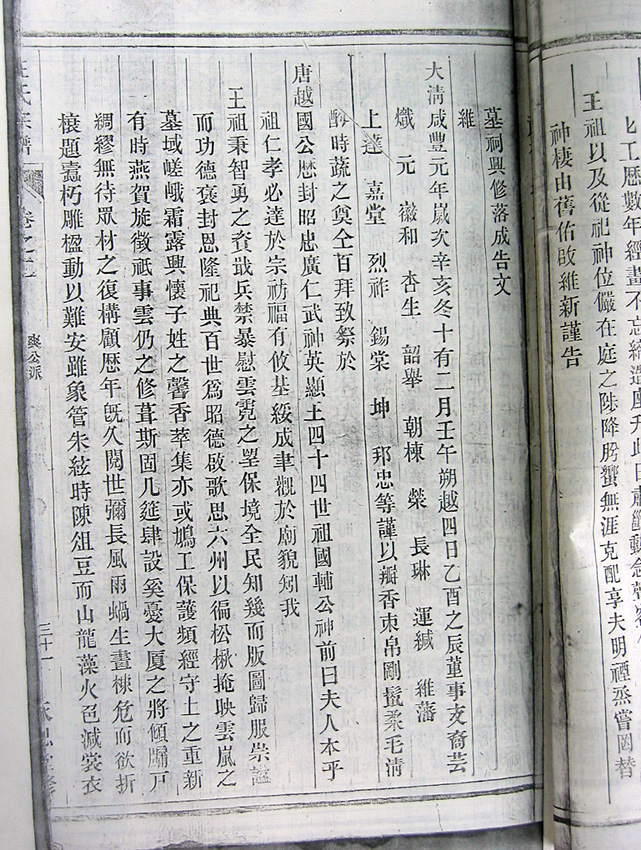 匕工歷數年經畫不忘締造座升此日肅
王祖以及從祀神位儼在庭之陟降肹蠁無涯克配享夫明禋烝嘗罔替
神棲由舊佑啟維新謹告
墓祠興修落成告文
維
大清咸豐元年歲次辛亥冬十有二月壬午朔越四日乙酉之辰董事支裔芸
熾 元 徽和 杏生 韶舉 朝棟 榮 長琳 運緘 維藩
上達 嘉堂 烈祚 錫棠 坤 邦忠等謹以瓣香束帛剛鬣柔毛清
酌時蔬之奠仝百拜致祭於
唐越國公歷封昭忠廣仁武神英顯王四十四世祖國輔公神前曰夫人本乎
祖仁孝必達於宗祊福有攸基綏成聿觀於廟貌矧我
王祖秉智勇之資戢兵禁暴慰雲霓之望保境全民知幾而版圖歸服崇謚
而功德褒封恩隆祀典百世為昭德啟歌思六州以徧松楸掩映雲嵐之
墓域嵯峨霜露興懷子姓之馨香萃集亦或鳩工保護頻經守土之重新
有時燕賀旋徵祇事雲仍之修葺斯固几筵肆設奚憂大厦之將傾牖戶
綢繆無待眾材之復構顧歷年旣久閱世彌長風雨蝸生畫棟危而欲折
榱題蠹朽雕楹動以難安雖象管朱絃時陳俎豆而山龍藻火色減裳衣
汪氏宗譜
卷之
爽公派
三十一